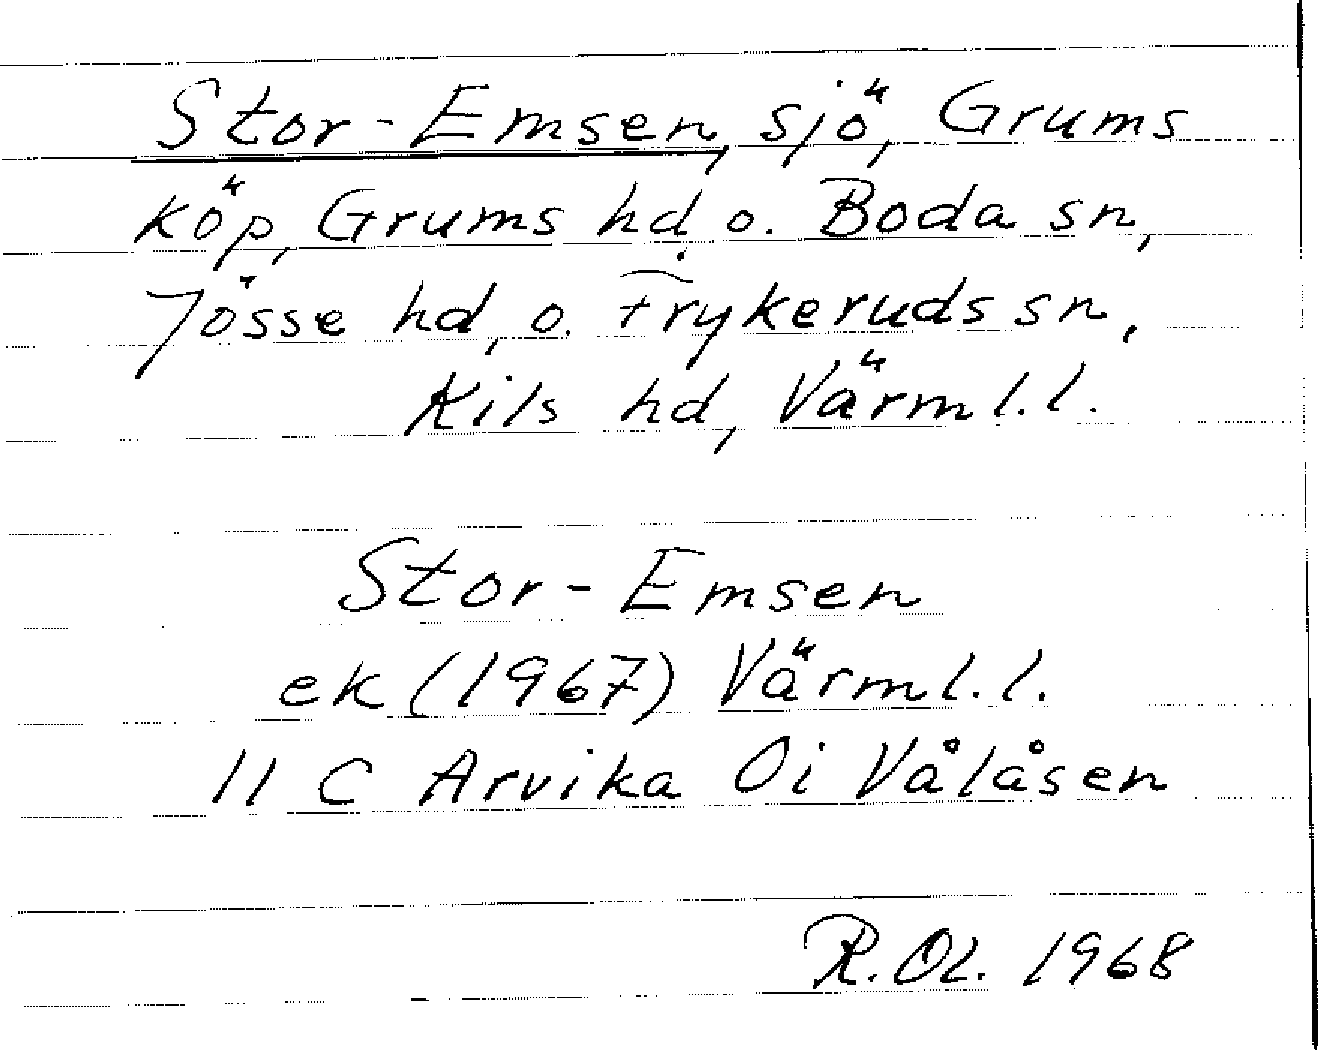 Stor-Emsen, sjö, Grums
köp, Grums hd o. Boda sn,
Jösse hd, o. Frykeruds sn,
Kils hd, Värml. l.
Stor-Emsen
ek (1967) Värml. l.
11 C Arvika 0i Vålåsen
R.Ol. 1968